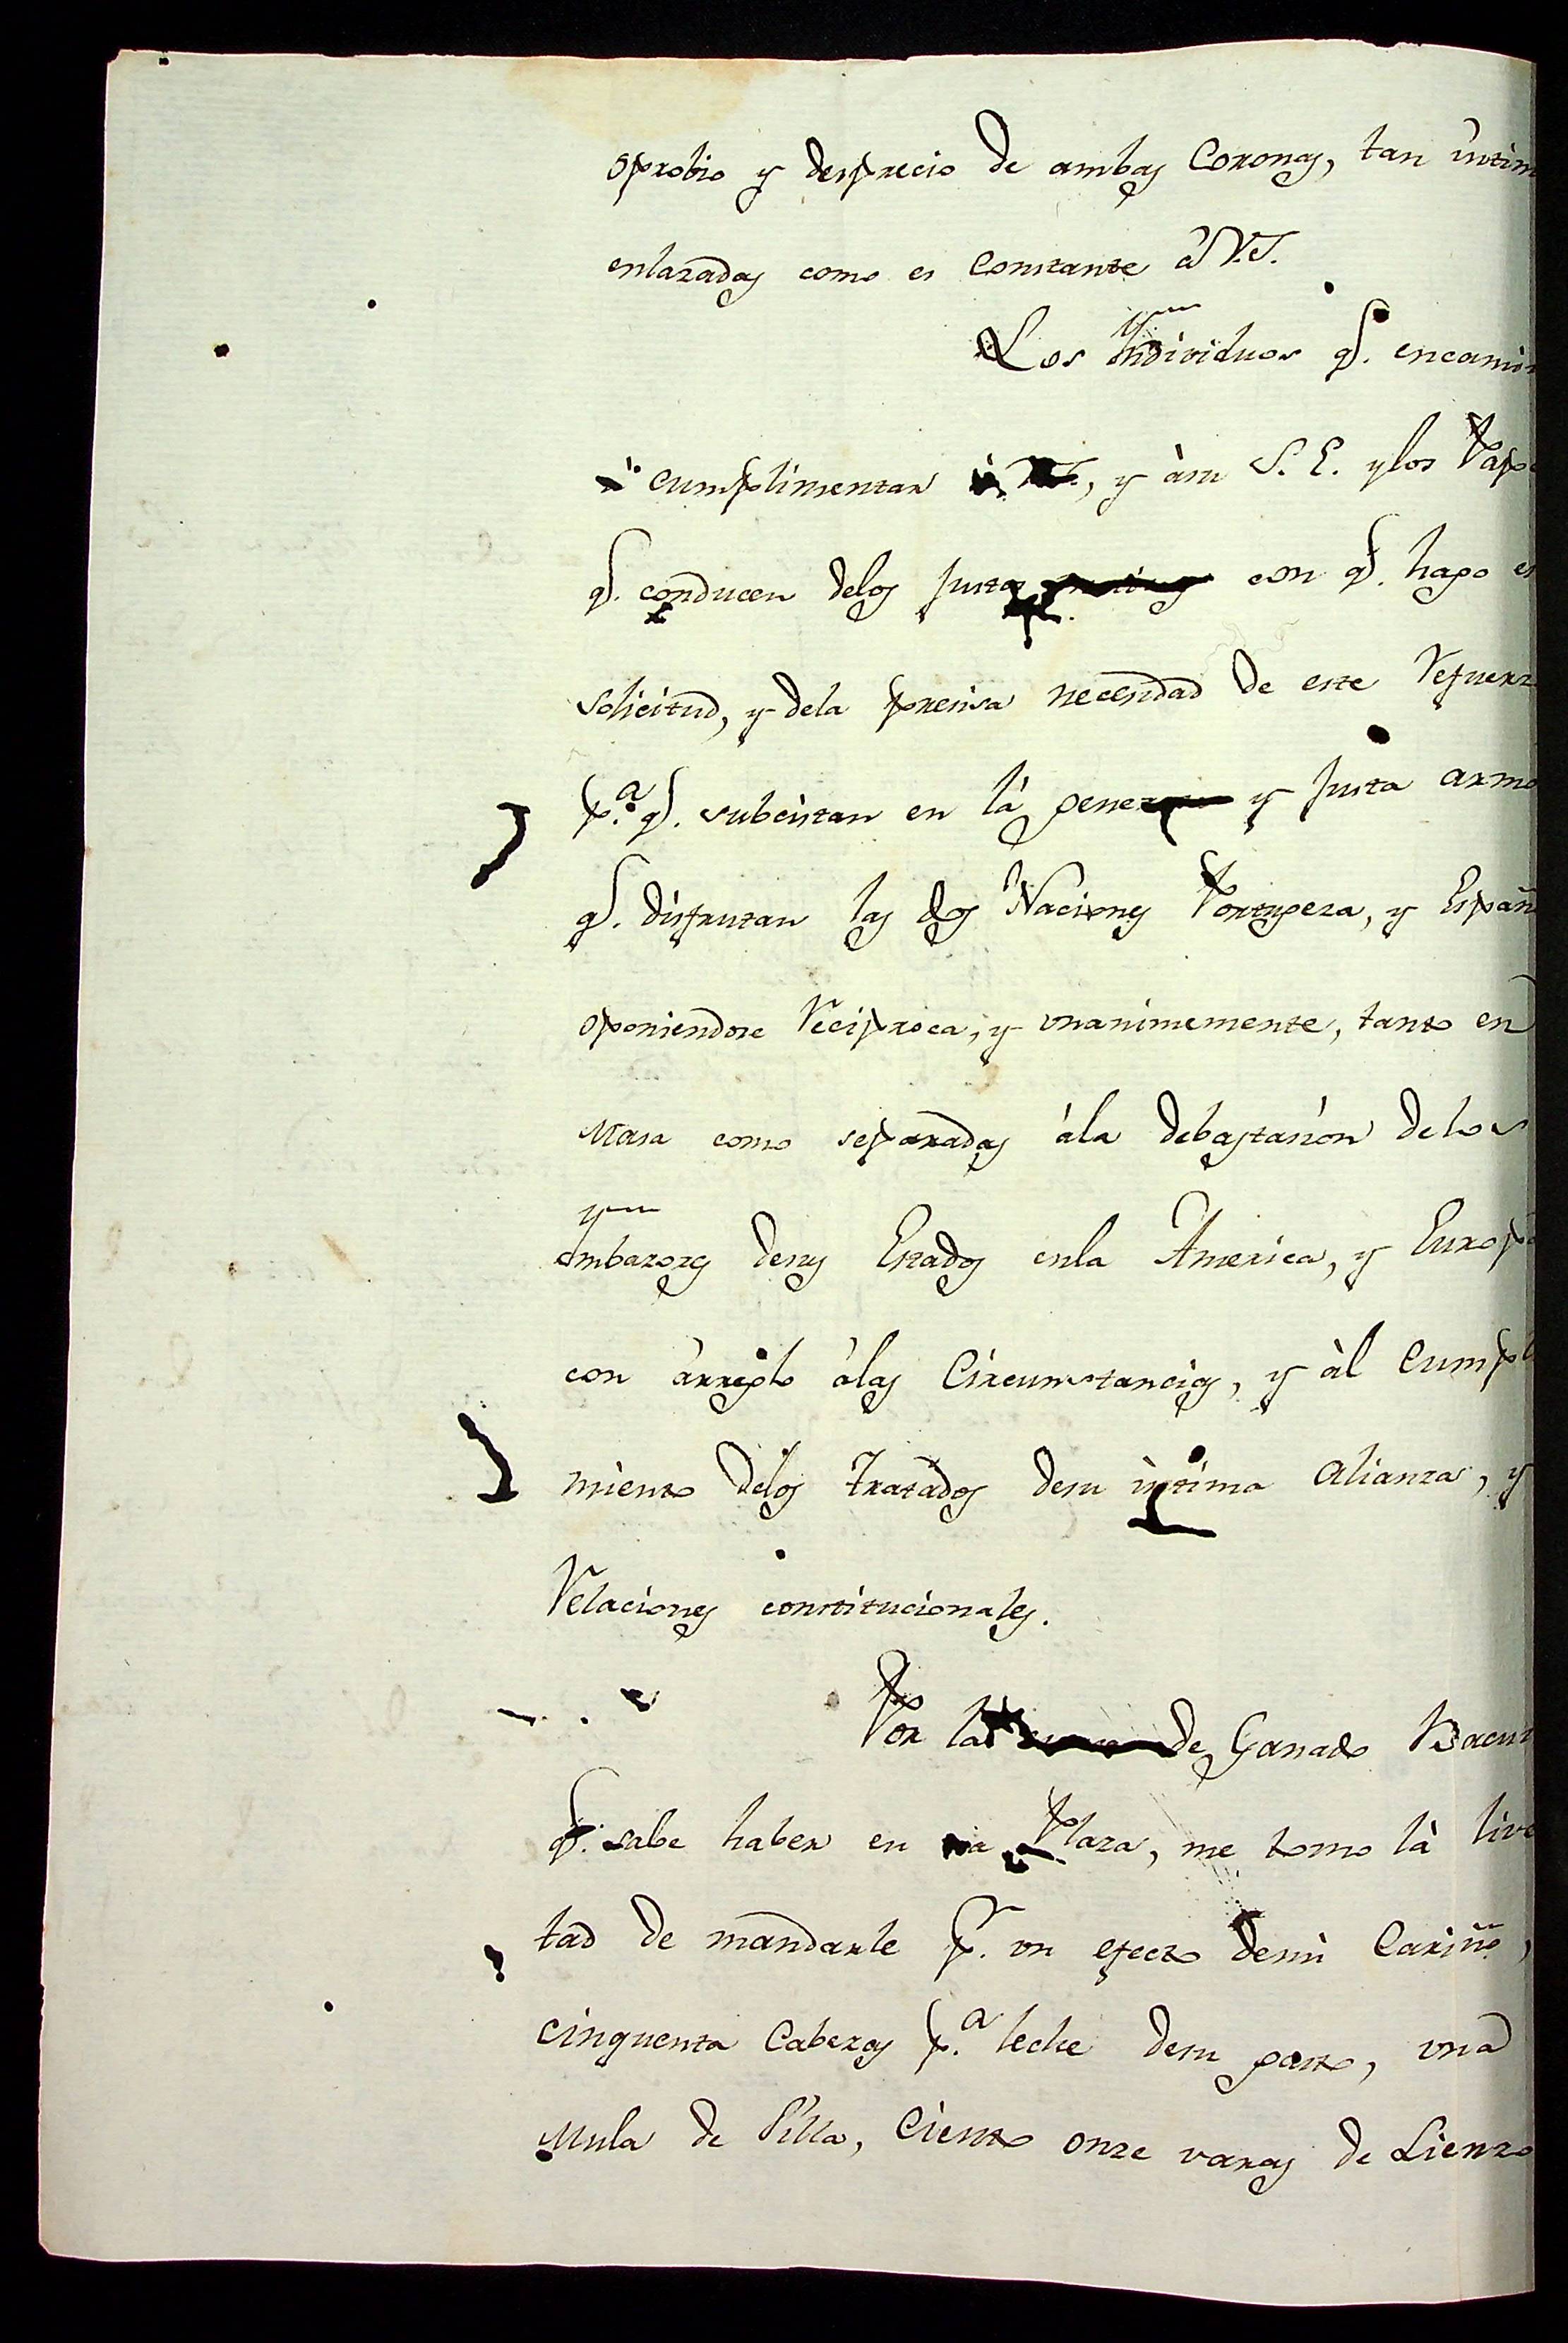 oprobio y desprecio de ambas Coronas, tan intim
enlazadas como es Constante â V.S.
Los Individuos q.e encamin
â cumplimentar à V.S., y àsu S. E. ylos Pape
q.e conducen delos justos con q.e hago es
solicitud, y dela presisa necesidad de este Refuerz
p.a q.e subcistan en là y justa armo
q.e disfrutan las dos Naciones Portugesa, y Españ
oponiendose Reciproca, y unanimemente, tanto en
Masa como separadas àla debastasion delos
embarazos desus Estados enla America, y Europa
con àrreglo àlas Circumstancias, y àl Cumpli
miento delos tratados desu intima Alianza, y
Relaciones constitucionales.
Por la de Ganado Bacun
q.e sabe haber en Plaza, me tomo là liver
tad de mandarle p.r un efecto demi Cariño,
cinquenta Cabezas p.a leche desu gasto, una
Mula de Silla, Ciento onze varas de Lienzo